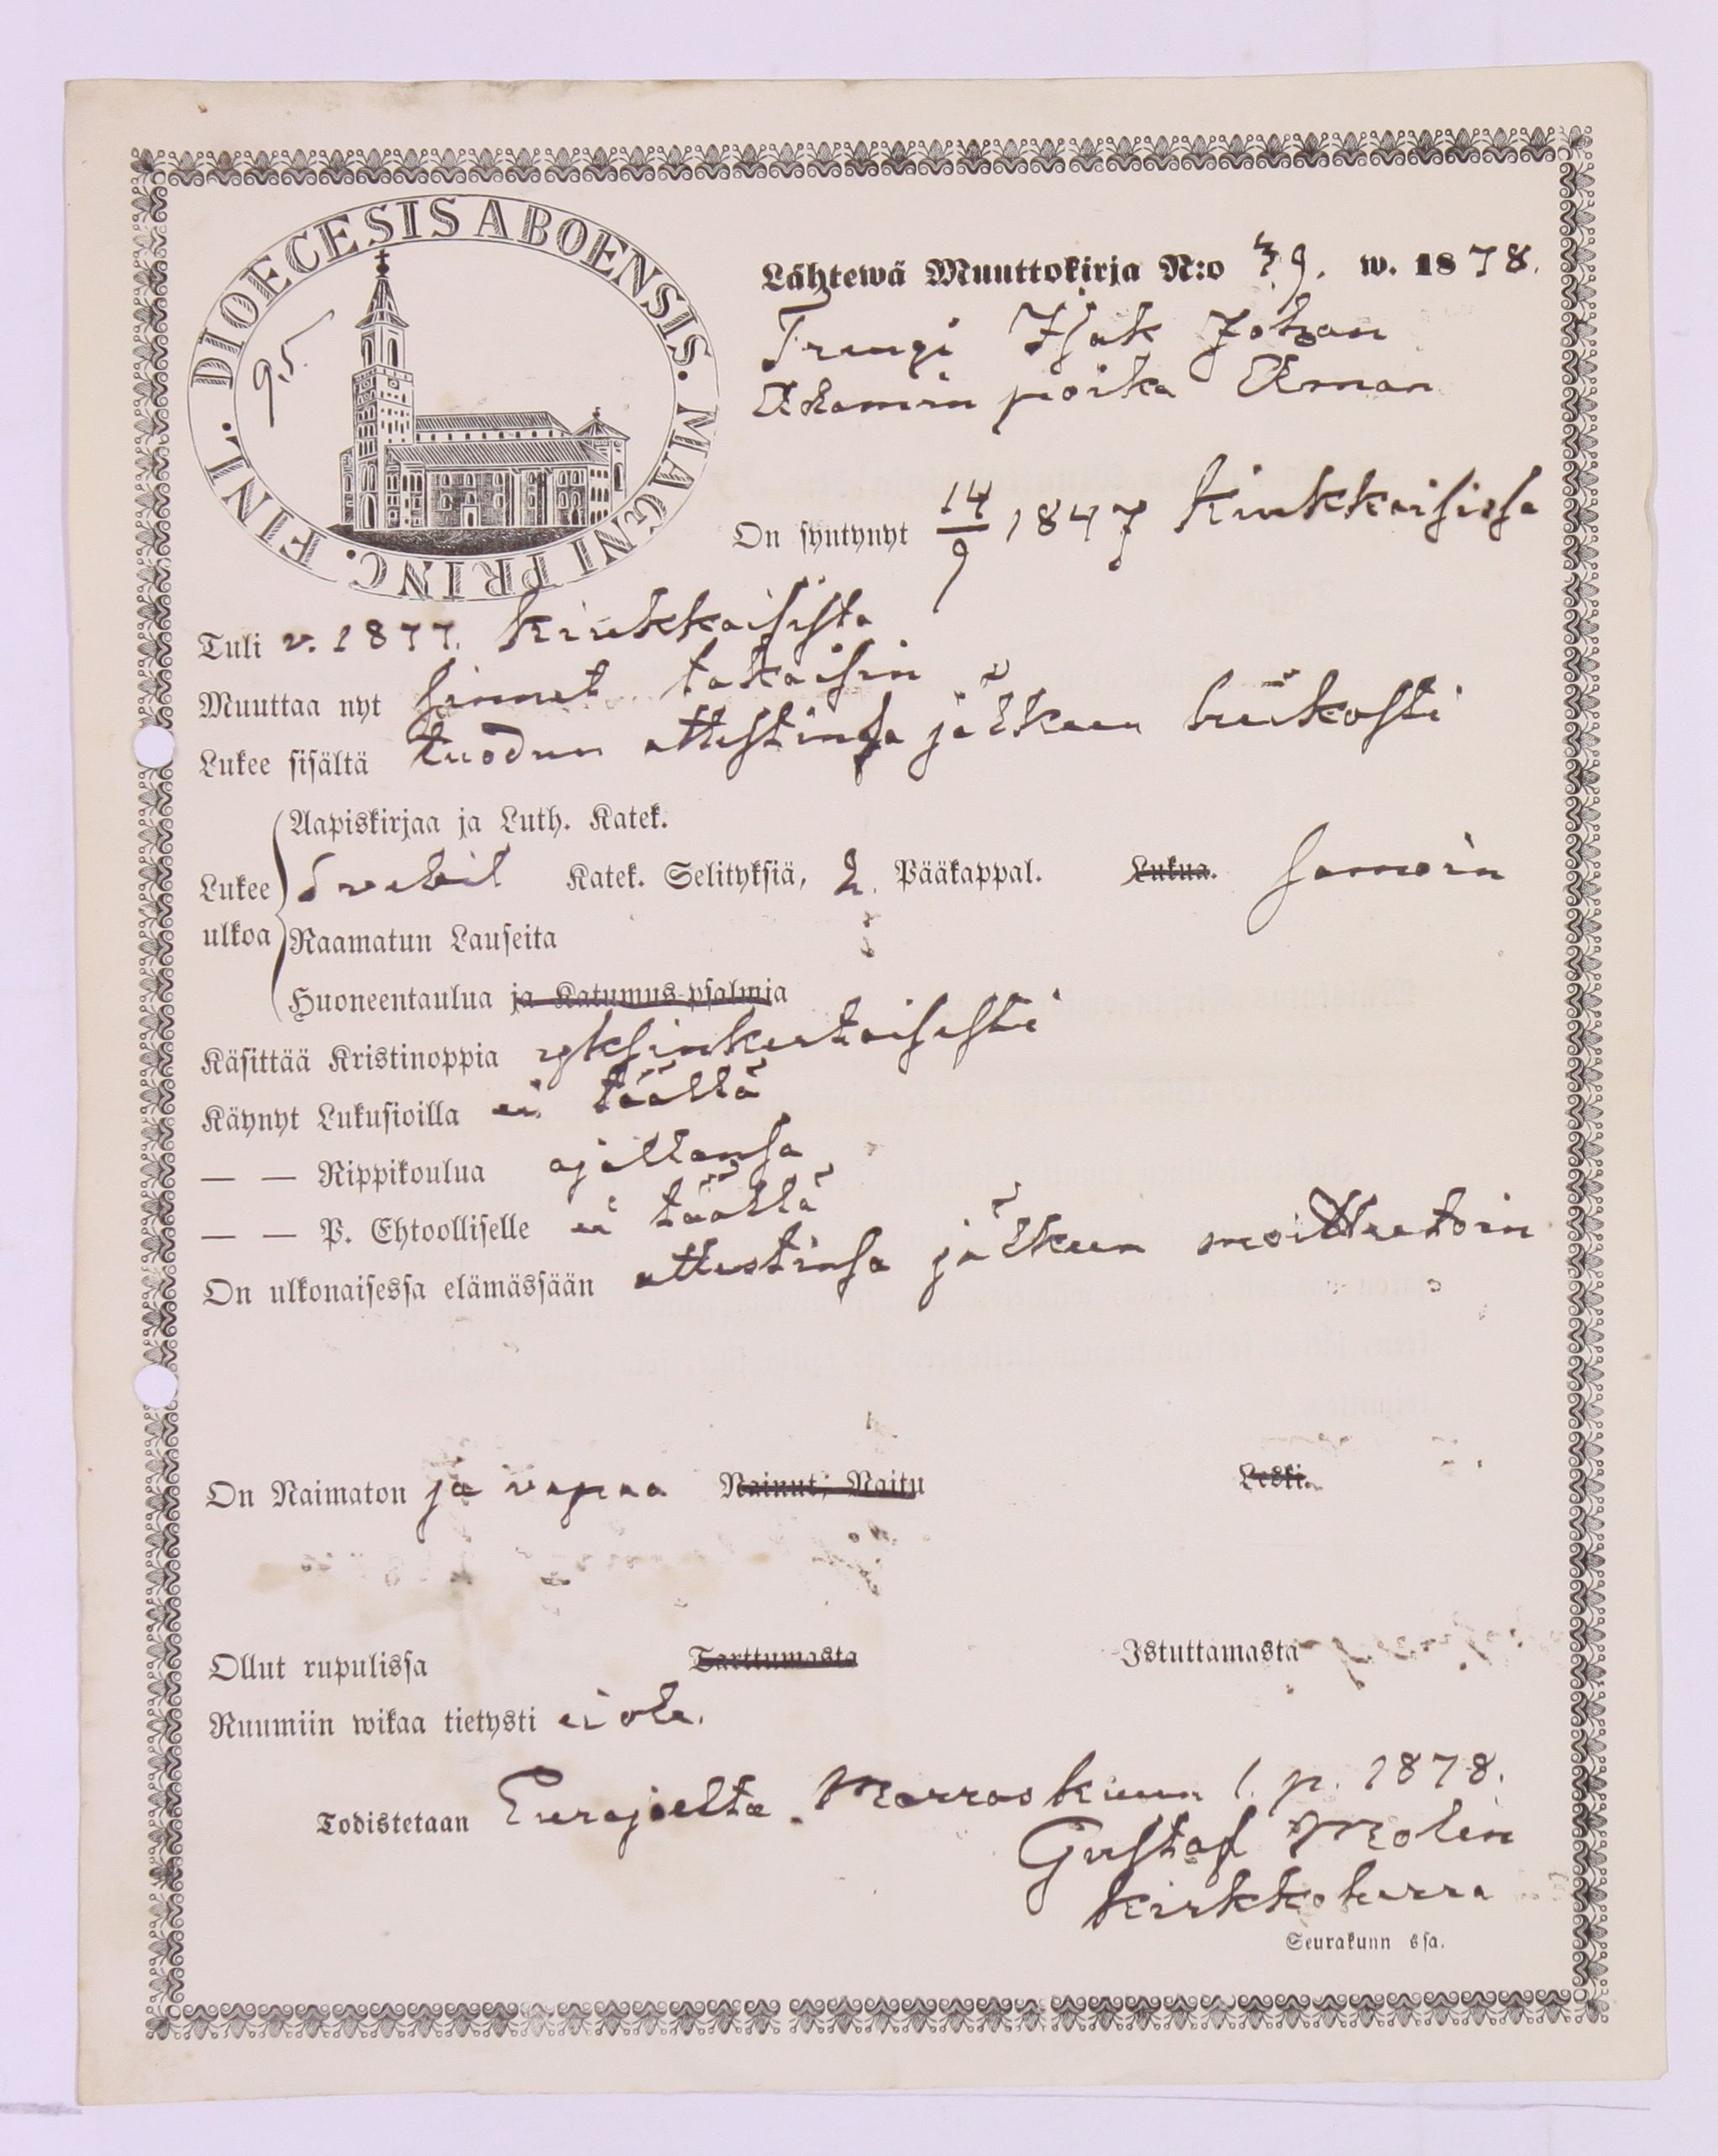 DIOECESIS ABOENSIS. MAGNI PRINC. FINL.
95.
Lähtewä Muuttokirja N:o 39. w. 1878.
Trengi Isak Johan
Adamin poika Öman
On syntynyt 14/9 1847 Kiukkaisissa
Tuli v. 1877. Kiukkaisista
Muuttaa nyt sinnet takaisin
Lukee sisältä tuodun attestinsa jälkeen heikosti
Aapiskirjaa ja Luth. Katek.
Lukee Svebil Katek. Selityksiä, 2. Pääkappal. Lukua. samoin
ulkoa Raamatun Lauseita
Huoneentaulua ja Katumus-psalmia
Käsittää Kristinoppia yksinkertaisesti
Käynyt Lukusioilla ei täällä
— — Rippikoulua ajallansa
— — P. Ehtoolliselle ei täällä
On ulkonaisessa elämässään attestinsa jälkeen moitteetoin
On Naimaton ja vapaa Nainut; Naitu Leski.
Ollut rupulissa Tarttumasta Istuttamasta
Ruumiin wikaa tietysti ei ole.
Todistetaan Eurajoelta Marraskuun 1. p. 1878.
Gustaf Molin
kirkkoherra
Seurakunn ssa.